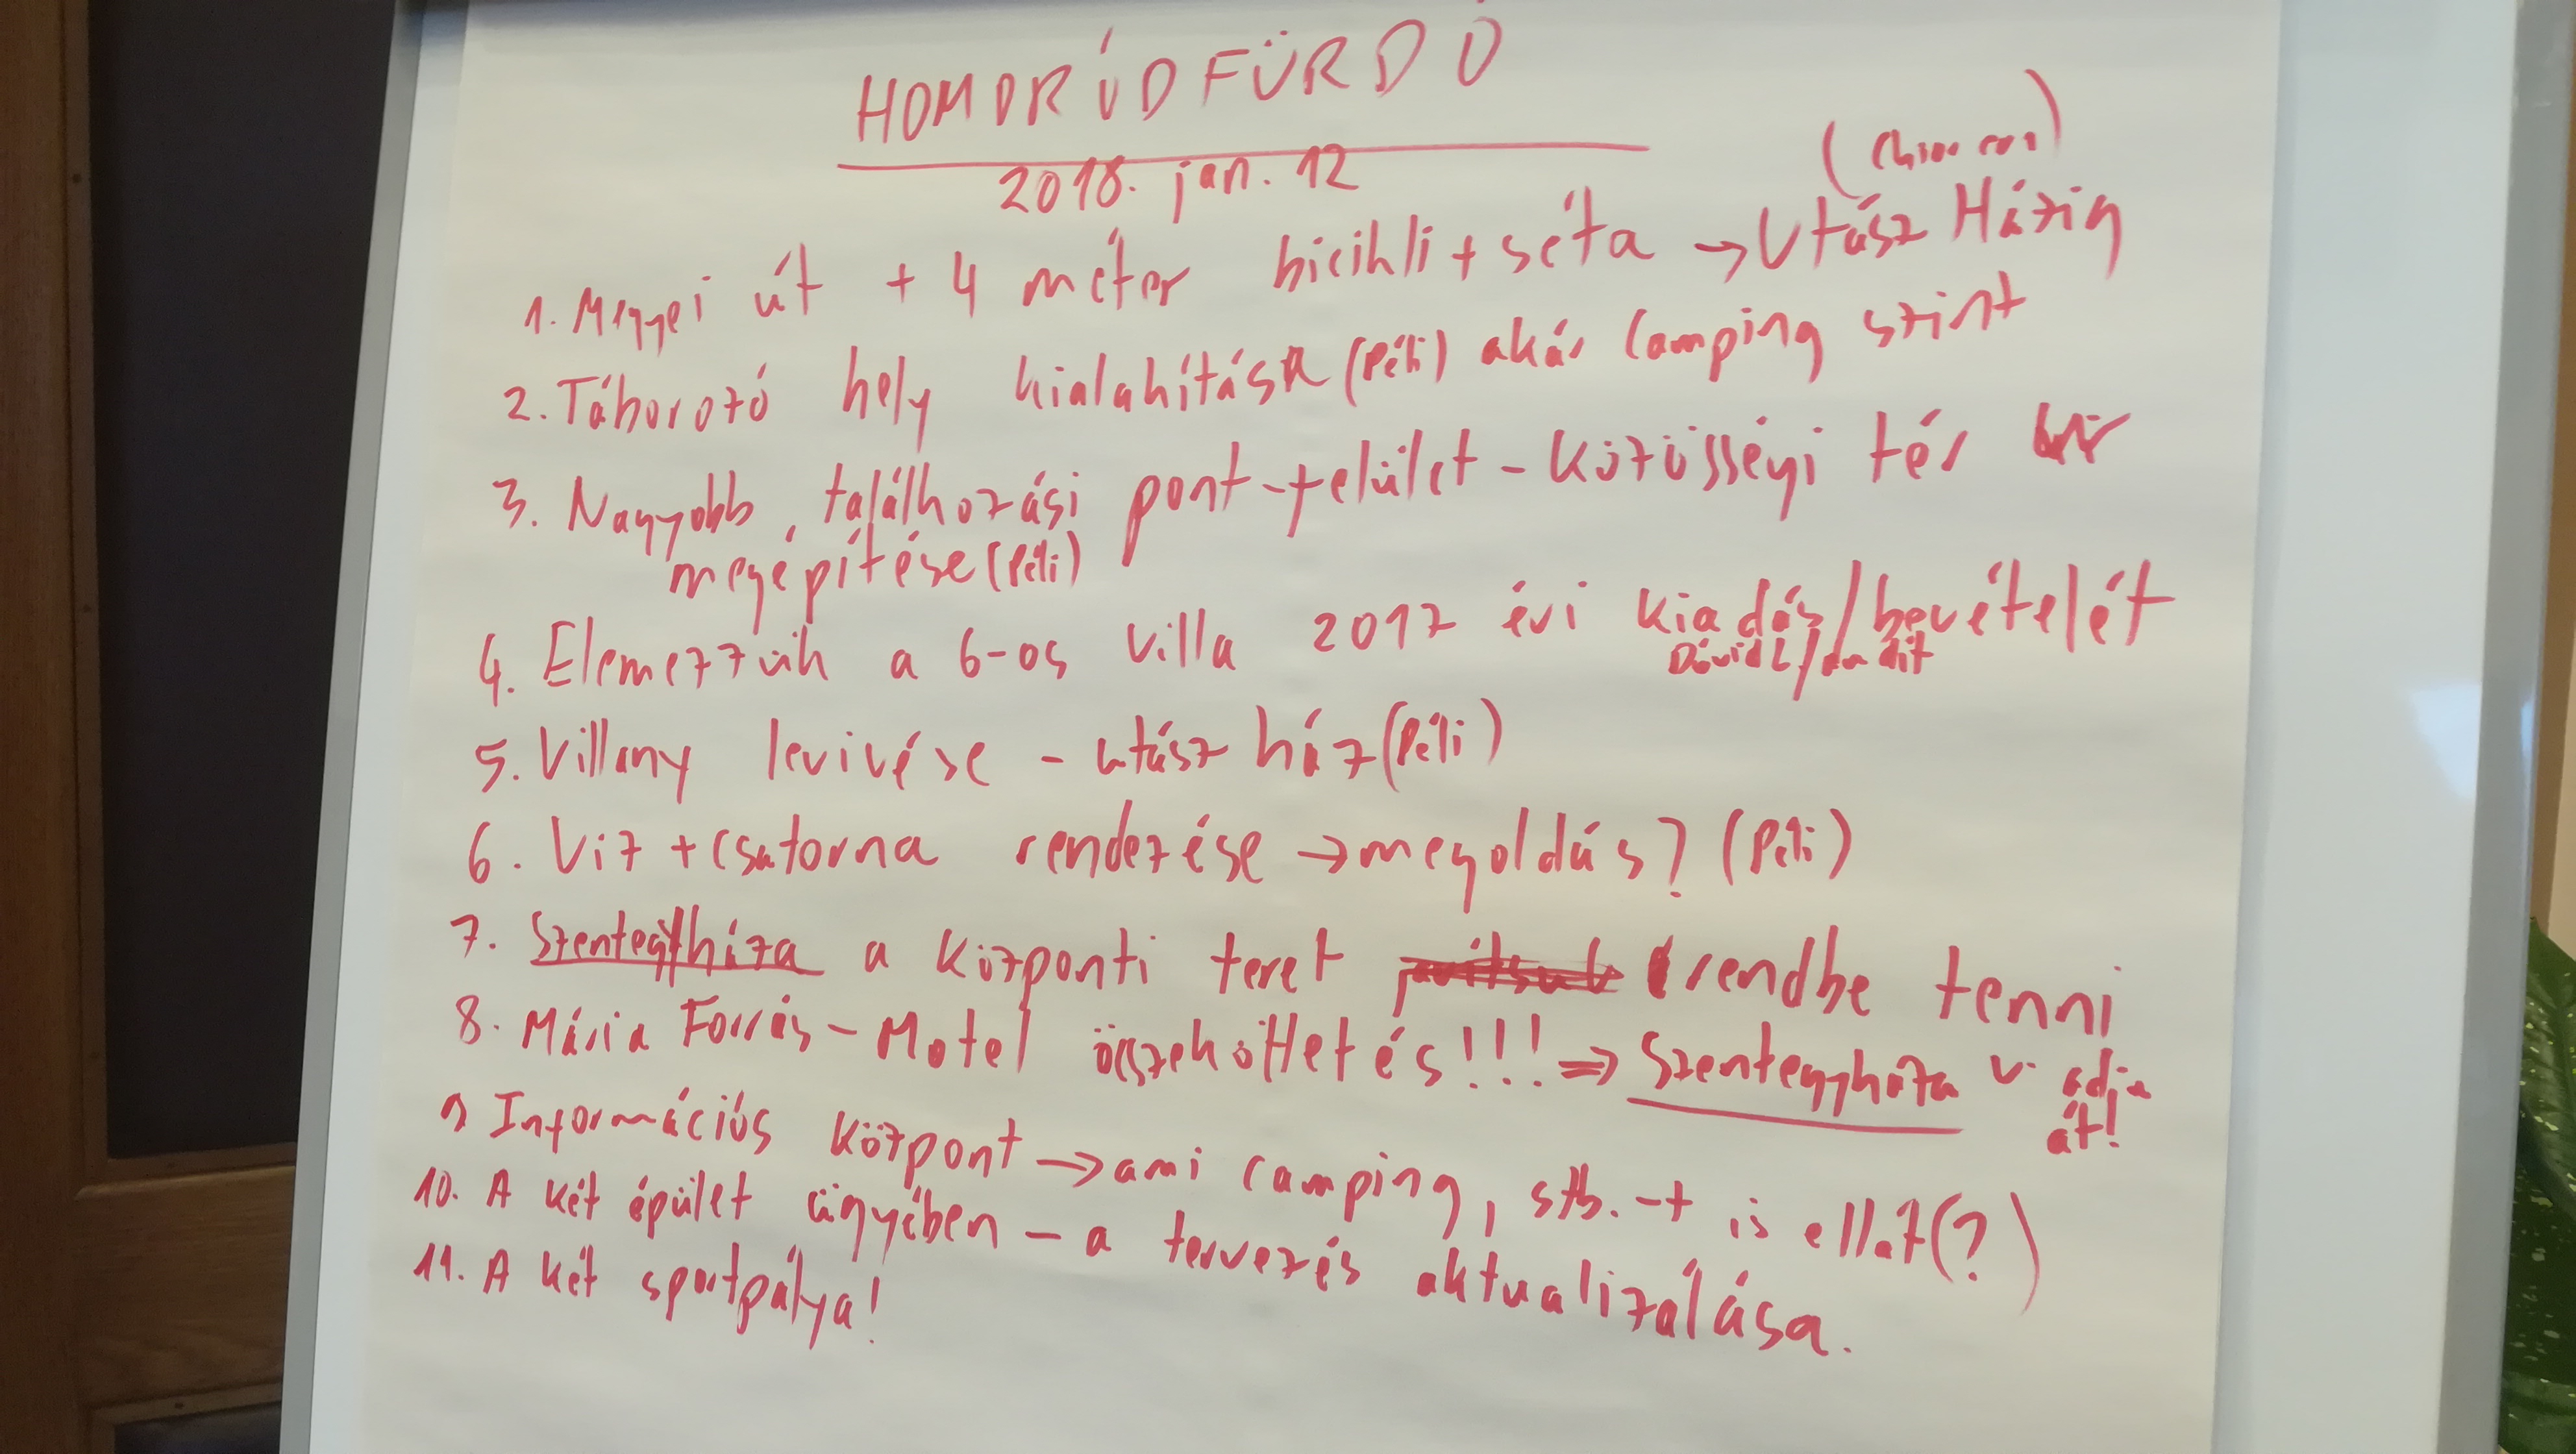 HOMORÓDFÜRDŐ
2018. jan. 12
1. Megyei út + 4 méter bicikli + séta → Utász Házig
2. Táborozó hely kialakítása (Péli) akár Camping szint
3. Nagyobb, találkozási pont-felület - Közösségi tér
megépítése (Péli)
4. Elemezzük a 6-os Villa 2017 évi kiadás/bevételét
Dávid L/
5. Villany levivése - utász ház (Péli)
6. Víz + Csatorna rendezése → megoldás? (Péli)
7. Szentegyháza a központi teret rendbe tenni
8. Mária Forrás - Motel összeköttetés!!! ⇒ Szentegyháza v. adja
át!
9 Információs központ → ami camping, stb. -t is ellát (?)
10. A két épület ügyében - a tervezés aktualizálása.
11. A két sportpálya!